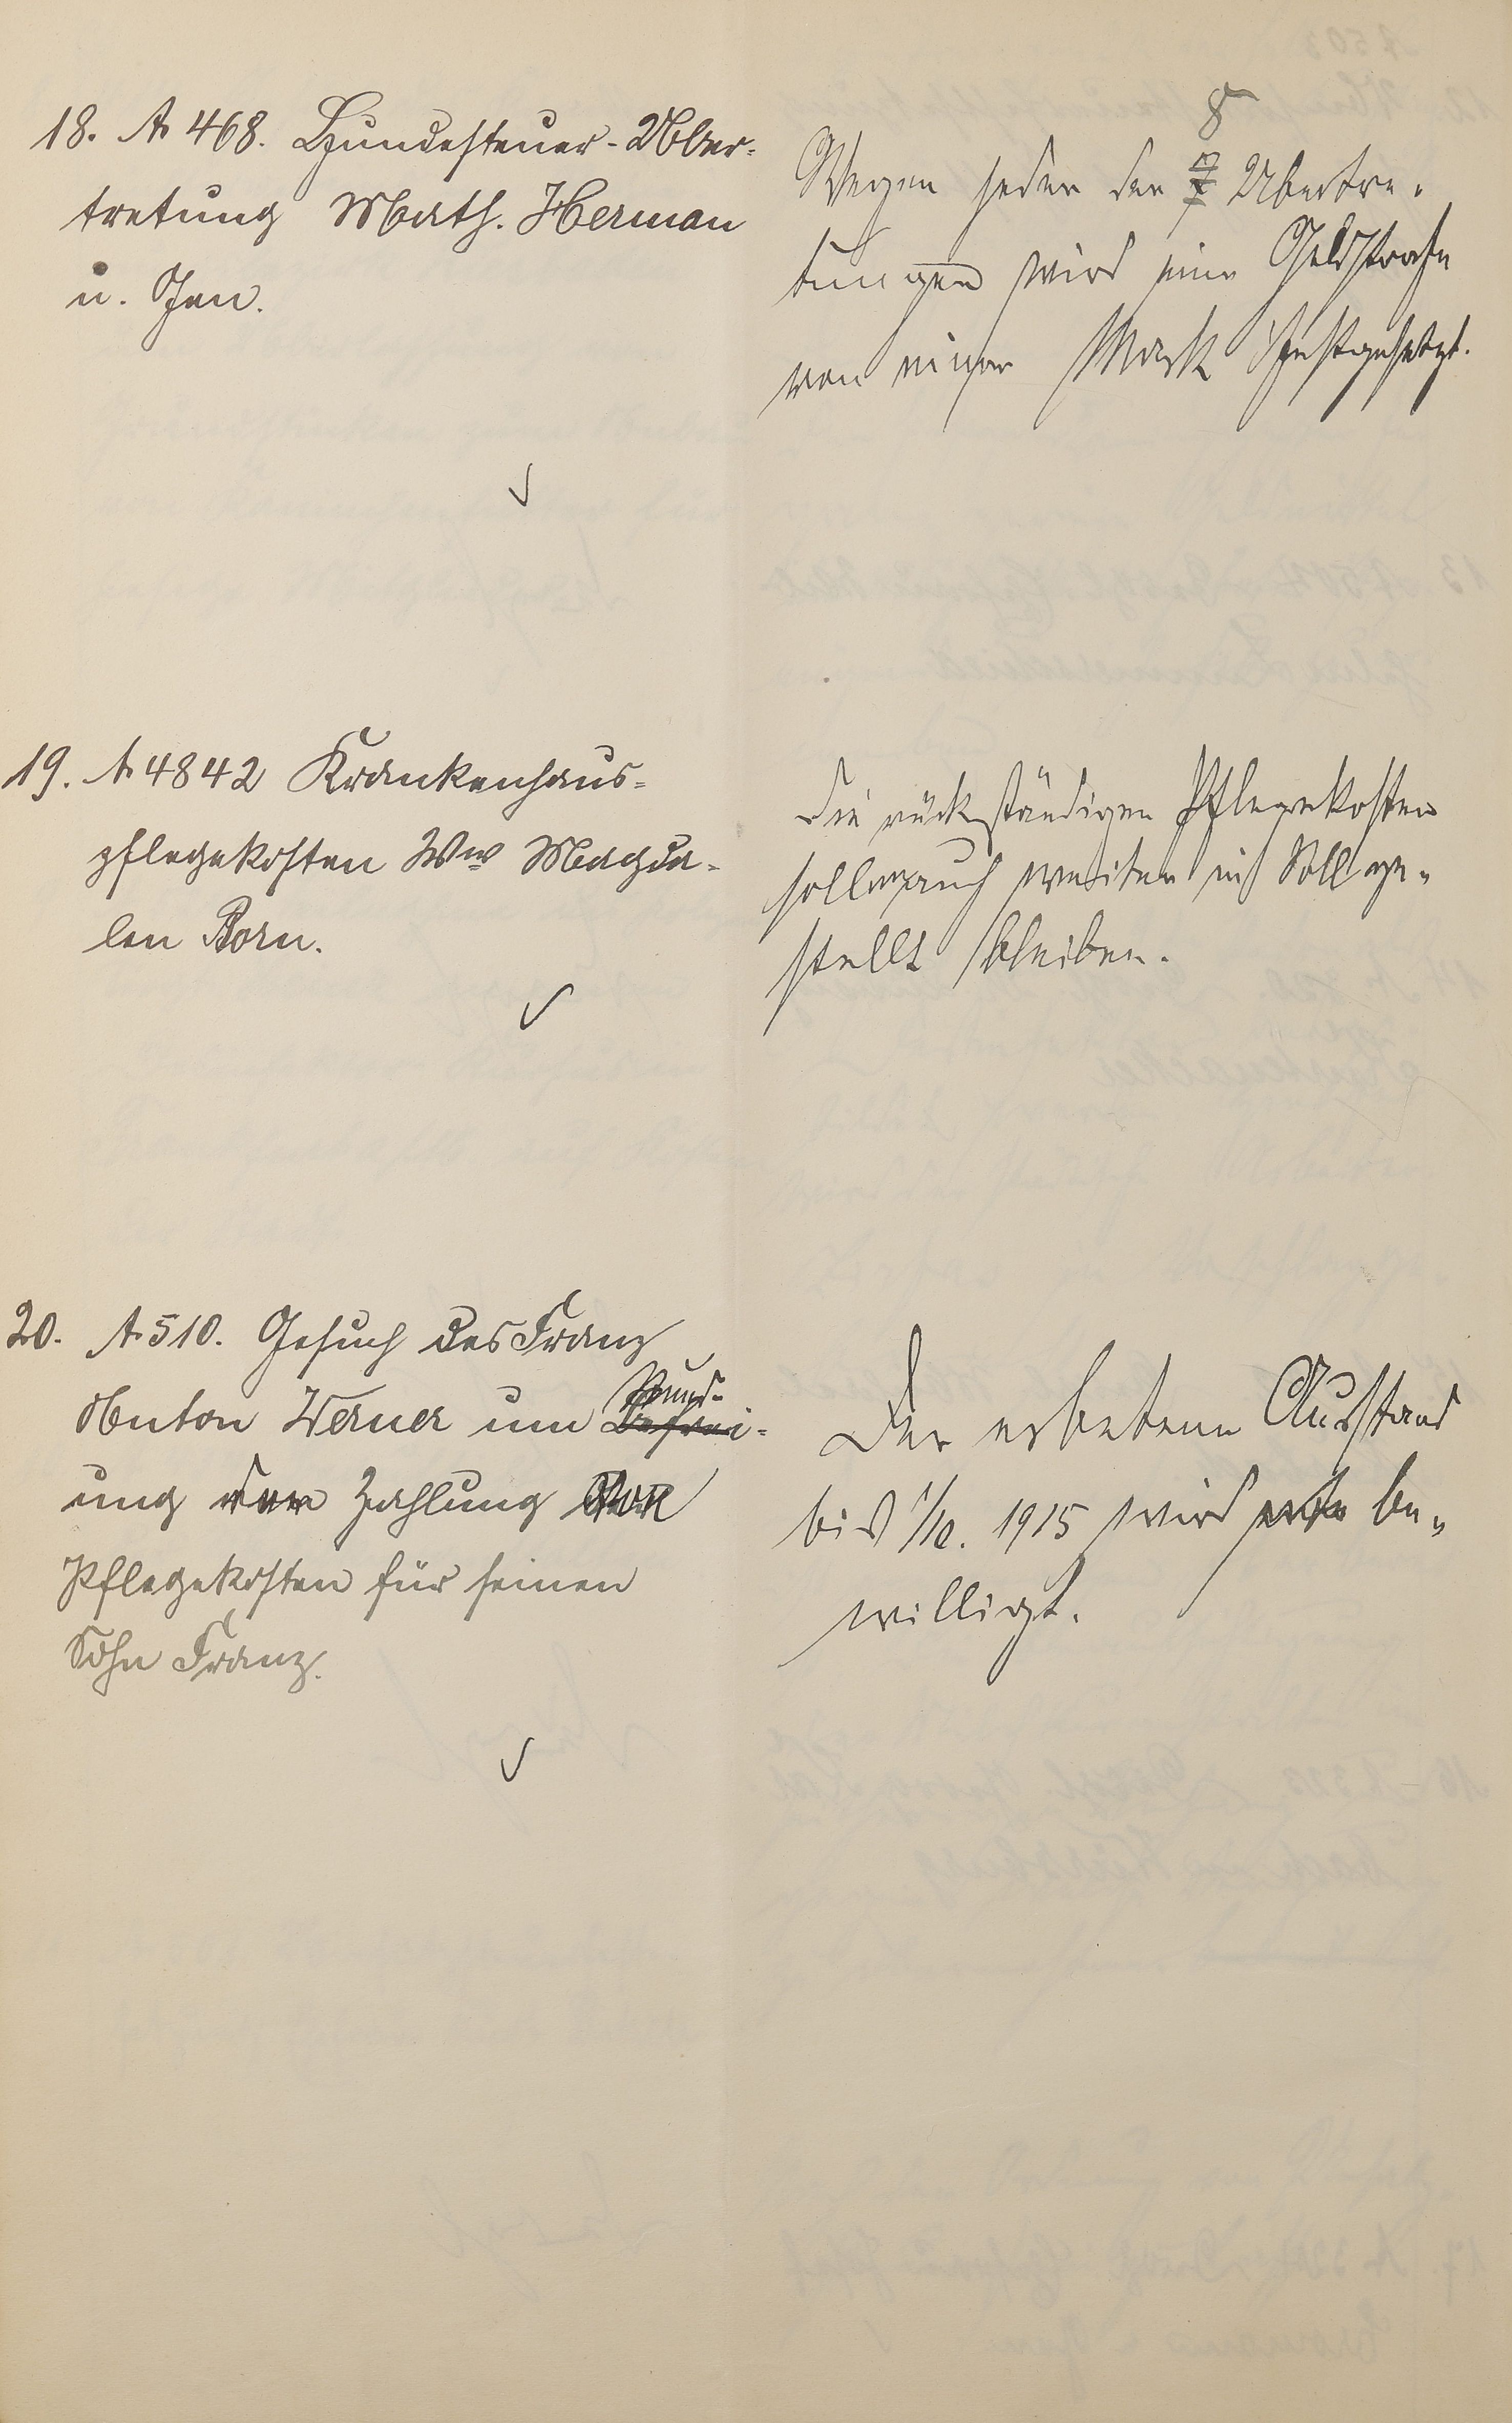 18. A 468. Hundesteuer-Über-
tretung Math. Herman
u. Gen.
8
Wegen jeder der 7 Übertre-
tungen wird eine Geldstrafe
von einer Mark festgesetzt.
19. A 4842 Krankenhaus-
pflegekosten Ww Magda-
len Born.
Die rückständigen Pflegekosten
sollen auch weiter in Soll ge-
stellt bleiben.
20. A 510. Gesuch des Franz
Anton Werner um Befrei-
ung von Zahlung der
Pflegekosten für seinen
Sohn Franz.
Der erbetene Ausstand
bis 1/10. 1915 wird be-
willigt.